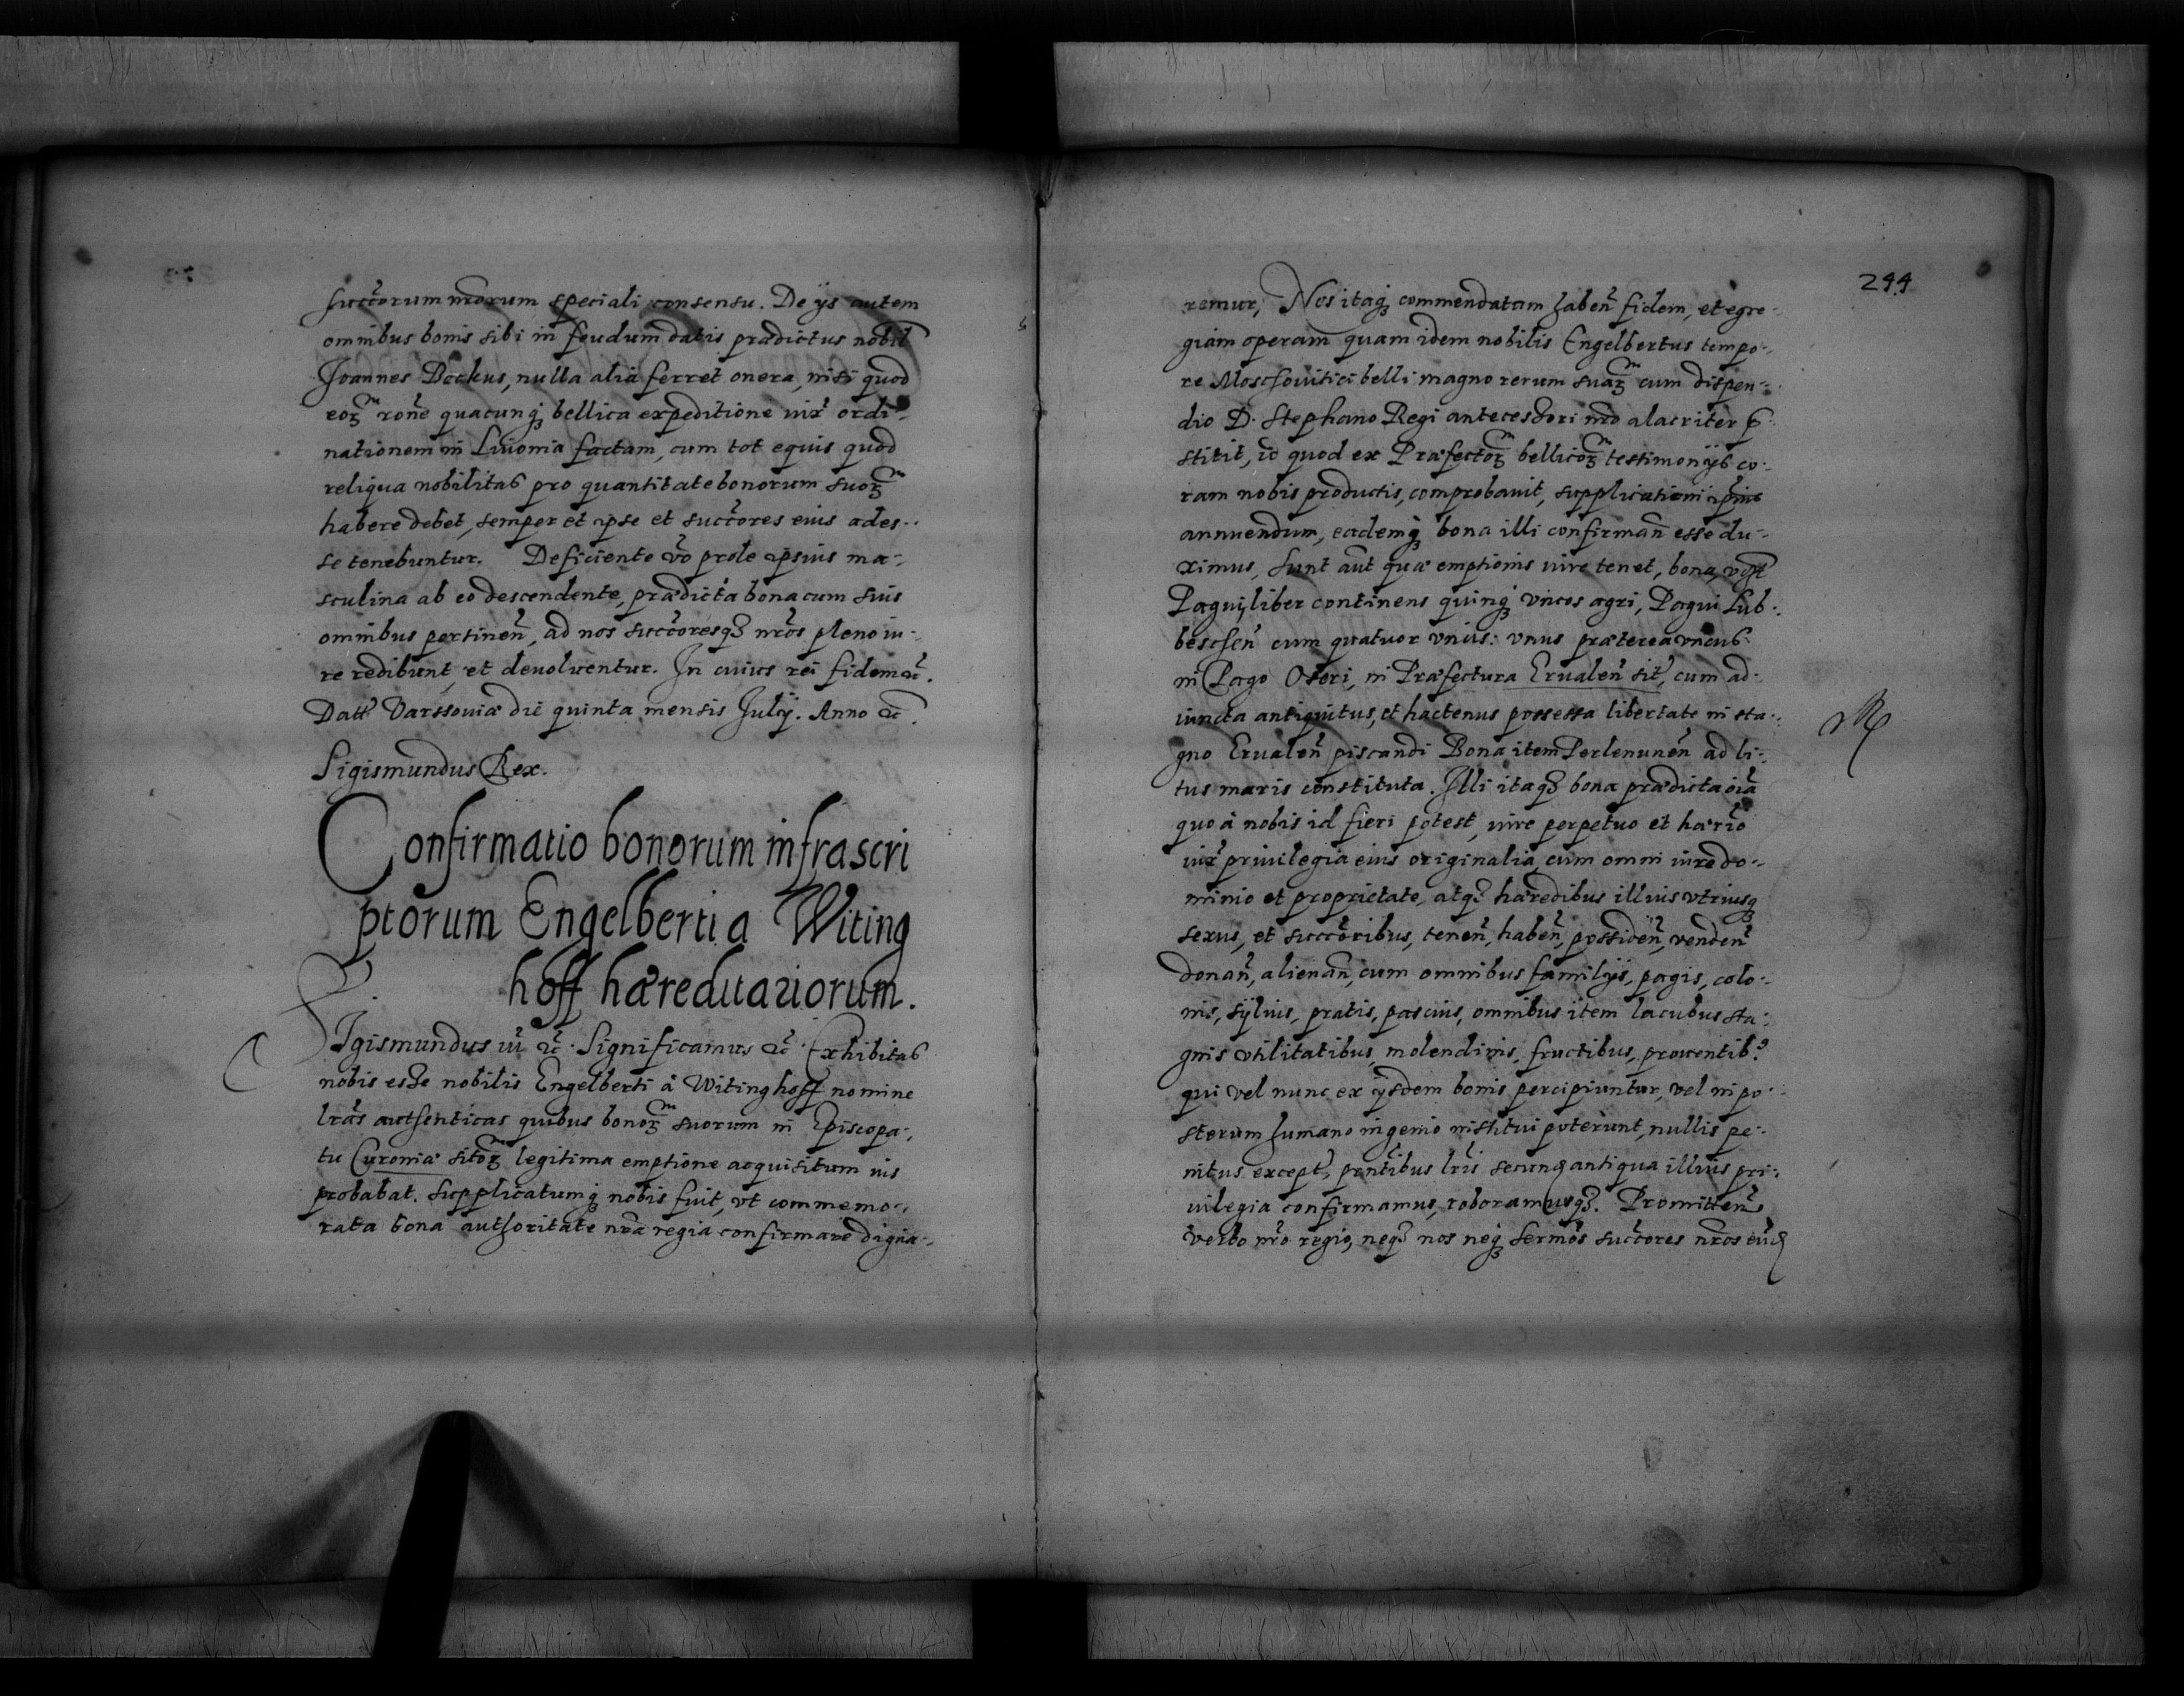 succ̃orum nr̃orum speciali consensu. De ijs autem
omnibus bonis sibi in feudum datis prædictus nobil̃
Joannes Bockus, nulla alia ferret onera, nisi quod
eoꝝ rõne quacunqꝫ bellica expeditione iux̃ ordi-
nationem in Liuonia factam, cum tot equis quod
reliqua nobilitas pro quantitate bonorum suoꝝ
habere debet, semper et ipse et succ̃ores eius ades-
se tenebuntur. Deficiente võ prole ipsius ma-
sculina ab eo descendente, prædicta bona cum suis
omnibus pertineñ, ad nos succ̃oresqꝫ nr̃os pleno iu-
re redibunt et deuoluentur. In cuius rei fidem ꝛc̃.
Datt̃ Varssouiæ die quinta mensis Julij. Anno ꝛc̃.
Sigismundus Rex.
Confirmatio bonorum infrascri
ptorum Engelberti a Witing
hoff hæreditariorum.
Sigismundus iii ꝛc̃. Significamus ꝛc̃. Exhibitas
nobis esse nobilis Engelberti à Witinghoff nomine
lr̃as authenticas quibus bonoꝝ suorum in Episcopa-
tu Curoniæ sitoꝝ legitima emptione acquisitum ius
probabat. Supplicatumqꝫ nobis fuit, vt commemo-
rata bona authoritate nr̃a regia confirmare digna-
244
remur, Nos itaqꝫ commendatam habeñ fidem, et egre-
giam operam quam idem nobilis Engelbertus tempo-
re Moschouitici belli magno rerum suaꝝ cum dispen-
dio D. Stephano Regi antecessori nr̃o alacriter p̃
stitit, id quod ex Præfectoꝝ bellicoꝝ testimonijs co-
ram nobis productis, comprobauit, supplicationi ip̃ius
annuendum, eademqꝫ bona illi confirmañ esse du-
ximus, Sunt aũt quæ emptionis iure tenet, bona,
Pagui, liber continens quinqꝫ vncos agri, Pagui Lub-
bescheñ cum quatuor vnius: vnus præterea vncus
in Pago Oseri, in Præfectura Erualeñ sit̃, cum ad-
iuncta antiquitus, et hactenus possessa libertate in sta-
gno Erualeñ piscandi Bona item Perlenuneñ ad li-
tus maris constituta. Illi itaqꝫ bona prædicta oĩa
quo à nobis id fieri potest, iure perpetuo et hær̃io
iux̃ priuilegia eius originalia, cum omni iure do-
minio et proprietate, atqꝫ hæredibus illius vtriusqꝫ
sexus, et succ̃oribus, teneñ, habeñ, possideñ, vendeñ
donañ, alienañ, cum omnibus familijs, pagis, colo-
nis, syluis, pratis, pascuis, omnibus item lacubus sta-
gnis vtilitatibus, molendinis, fructibus, prouentib⁹
qui vel nunc ex ijsdem bonis percipiuntur, vel in po-
sterum humano ingenio institui poterunt, nullis pe-
nitus except̃, pñtibus lr̃is secund antiqua illius pri-
uilegia confirmamus, roboramusqꝫ. Promitteñ
verbo nr̃o regio, neqꝫ nos neqꝫ Serm̃os succ̃ores nr̃os